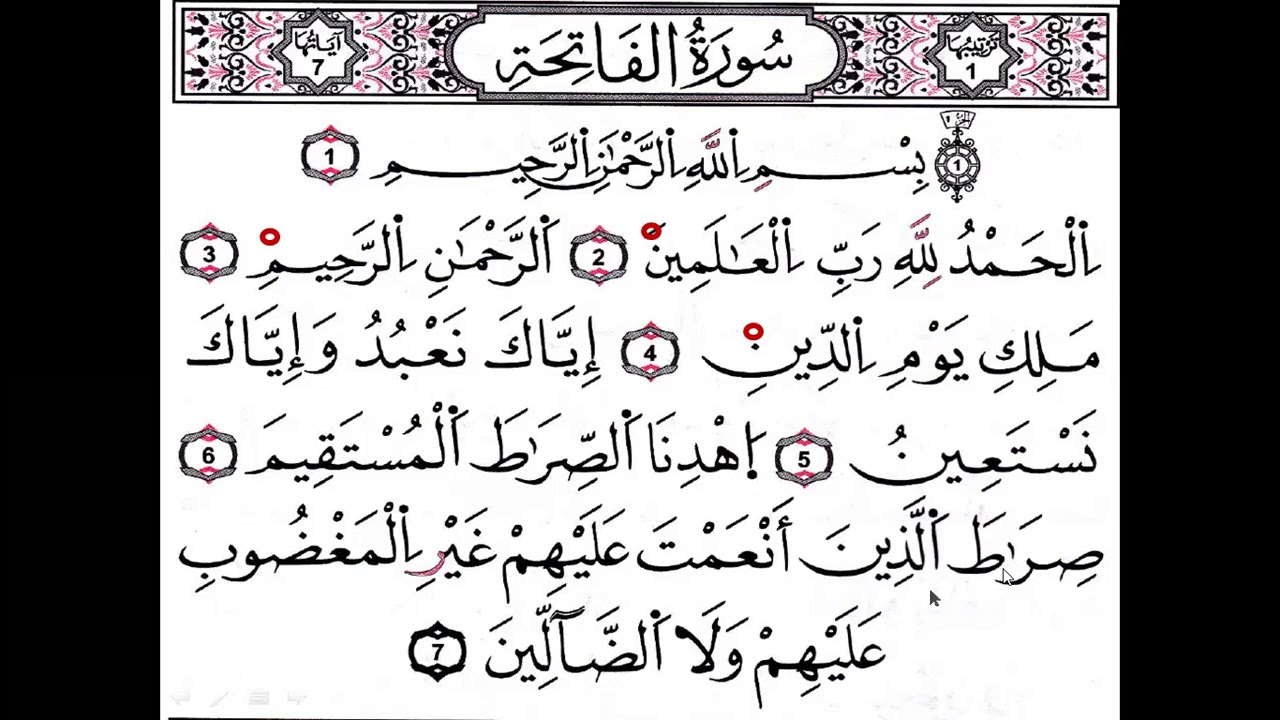 ترتيبها 1 سُورَةُ الفَاتِحَةِ آيَاتُهَا 7
الجزء 1
1 بِسْمِ اِ۬للَّهِ اِ۬لرَّحْمَٰنِ اِ۬لرَّحِيمِ 1
اِ۬لْحَمْدُ لِلَّهِ رَبِّ اِ۬لْعَٰلَمِينَ 2 اَ۬لرَّحْمَٰنِ اِ۬لرَّحِيمِ 3
مَلِكِ يَوْمِ اِ۬لدِّينِ 4 إِيَّاكَ نَعْبُدُ وَإِيَّاكَ
نَسْتَعِينُ 5 اِ۪هْدِنَا اَ۬لصِّرَٰطَ اَ۬لْمُسْتَقِيمَ 6
صِرَٰطَ اَ۬لَّذِينَ أَنْعَمْتَ عَلَيْهِمْ غَيْرِ اِ۬لْمَغْضُوبِ
عَلَيْهِمْ وَلَا اَ۬لضَّآلِّينَ 7